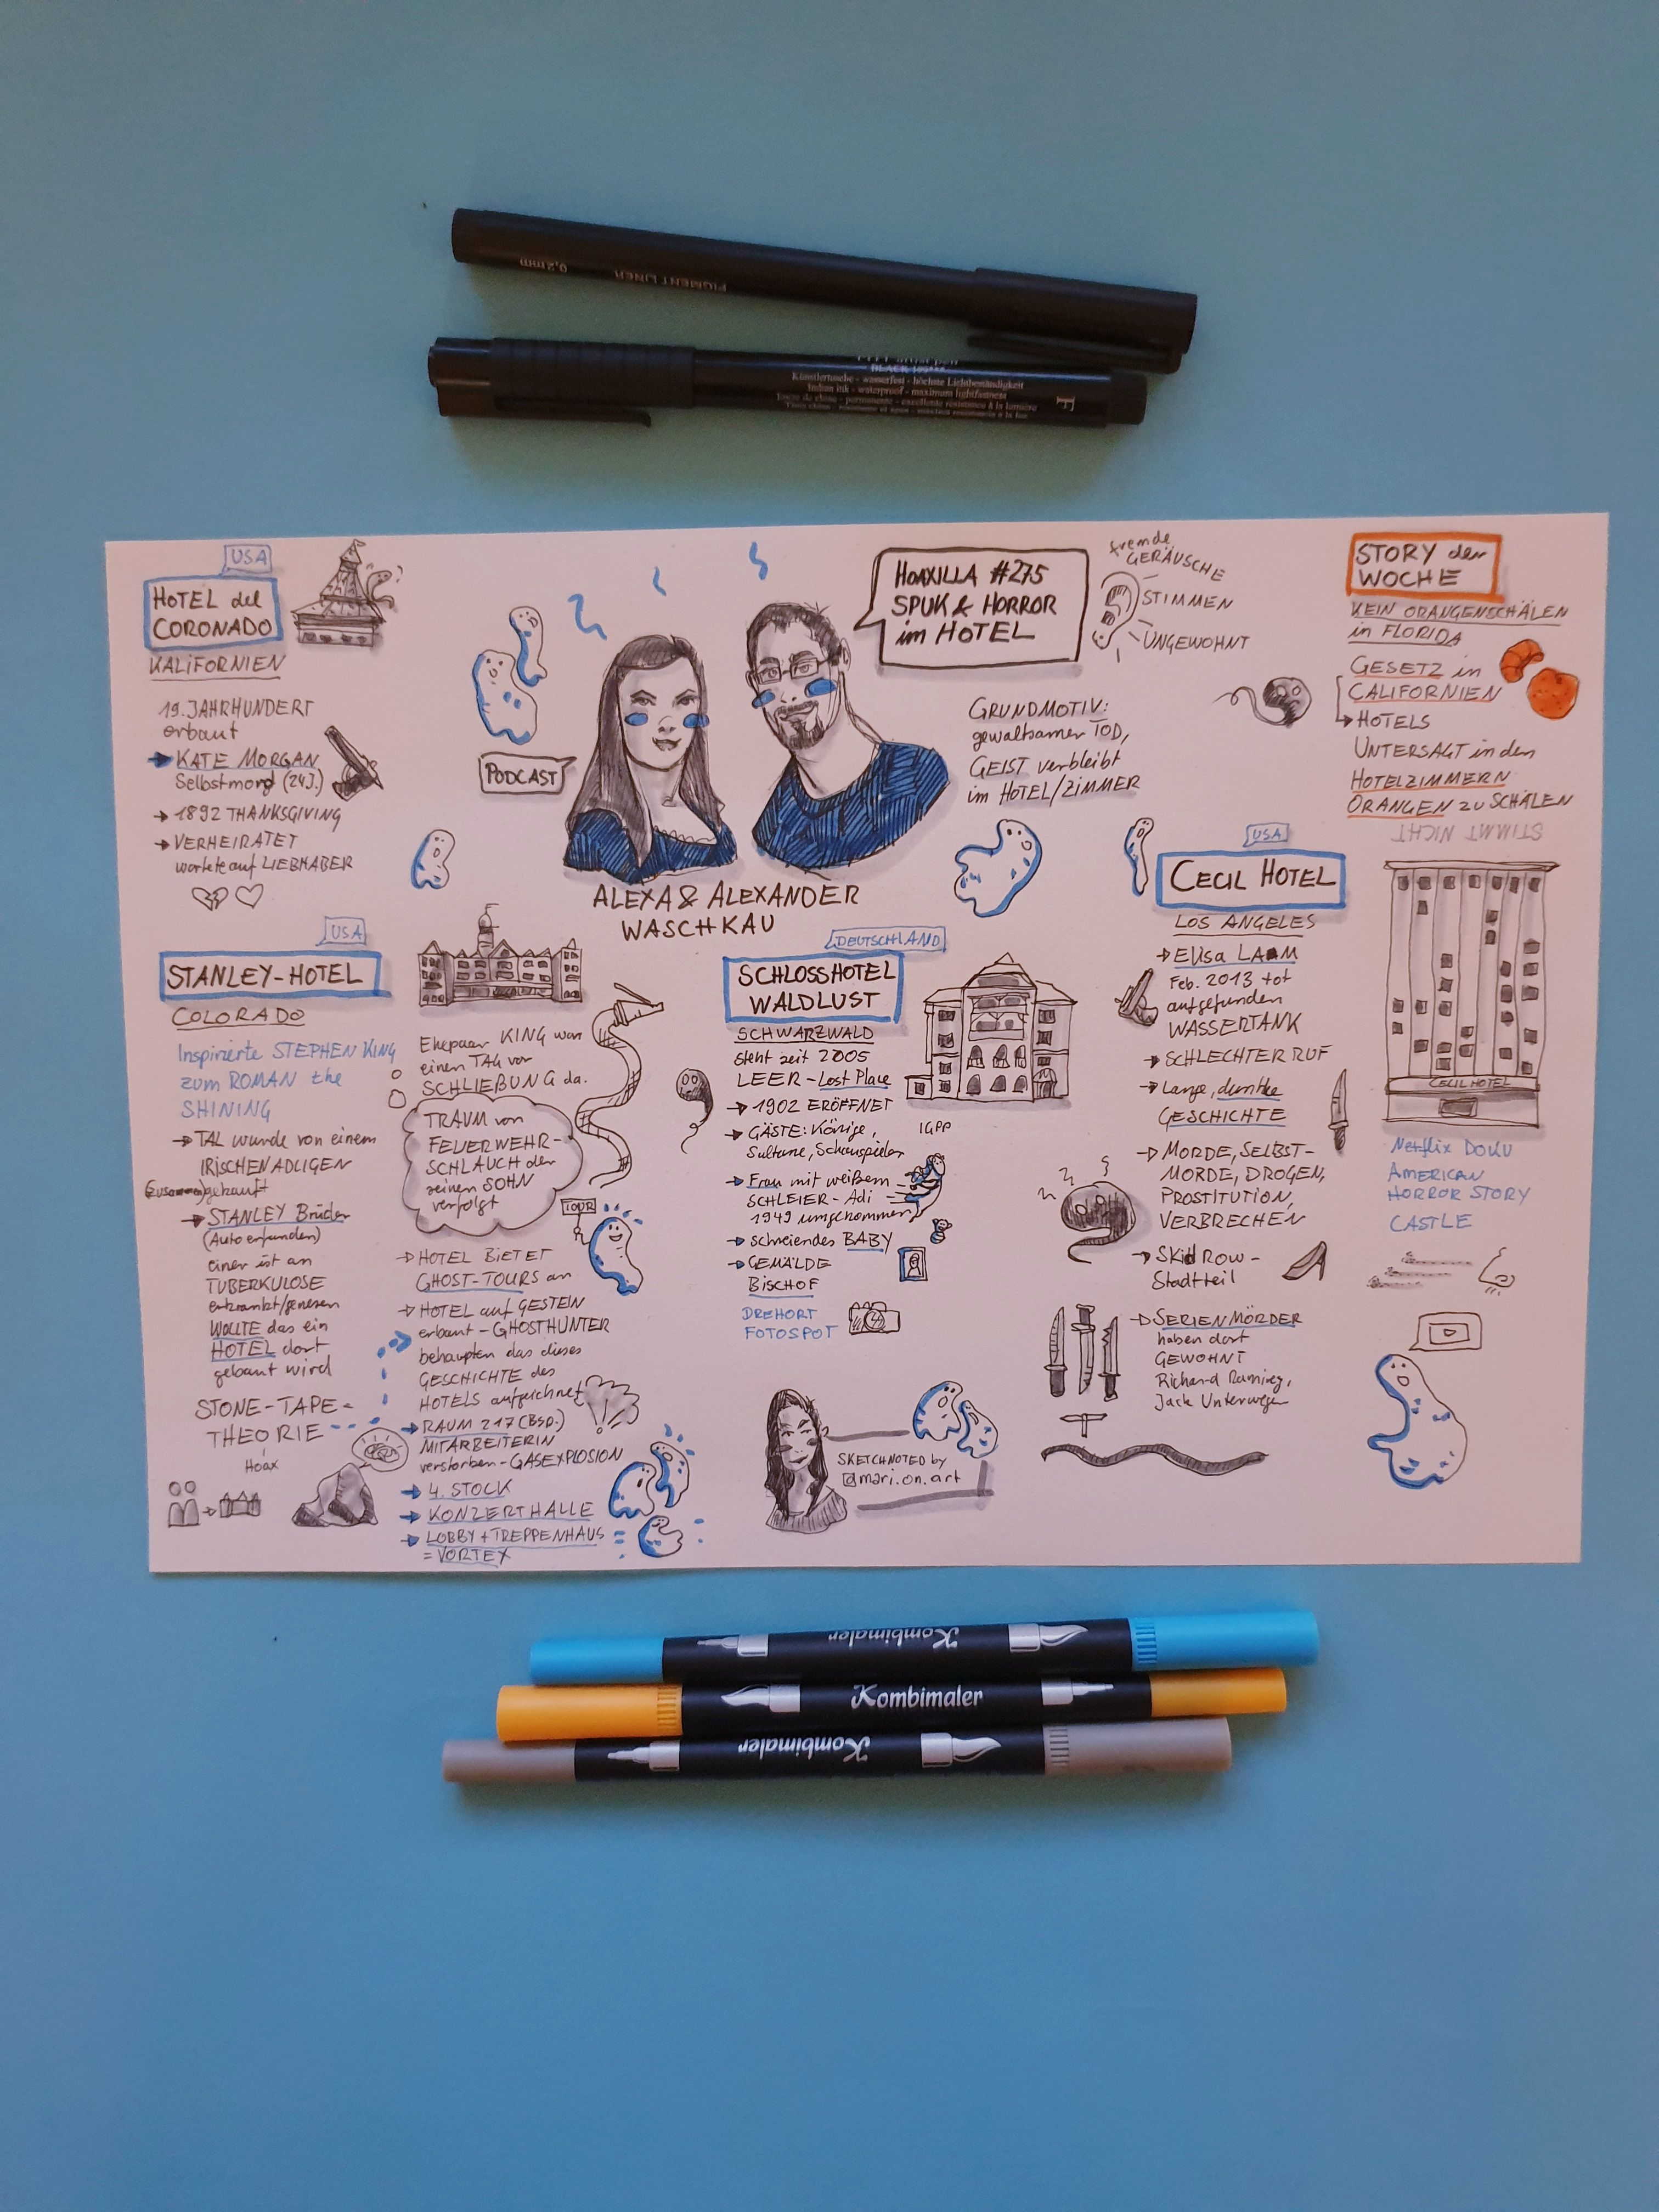 PIGMENT LINER 0,2mm
Künstlertusche - wasserfest - höchste Lichtbeständigkeit
Indian ink - waterproof - maximum lightfastness
F
USA
HOTEL del
CORONADO
KALIFORNIEN
19. JAHRHUNDERT
erbaut
KATE MORGAN
Selbstmord (24J.)
→ 1892 THANKSGIVING
→ VERHEIRATET
wartete auf LIEBHABER
PODCAST
HOAXILLA #275
SPUK & HORROR
im HOTEL
ALEXA & ALEXANDER
WASCHKAU
fremde
GERÄUSCHE
STIMMEN
UNGEWOHNT
GRUNDMOTIV:
gewaltsamer TOD,
GEIST verbleibt
im HOTEL/ZIMMER
STORY der
WOCHE
KEIN ORANGENSCHÄLEN
in FLORIDA
GESETZ in
CALIFORNIEN
→ HOTELS
UNTERSAGT in den
HOTELZIMMERN
ORANGEN ZU SCHÄLEN
STIMMT NICHT
USA
STANLEY-HOTEL
COLORADO
Inspirierte STEPHEN KING
zum ROMAN the
SHINING
→ TAL wurde von einem
IRISCHEN ADLIGEN
gekauft
→ STANLEY Brüder
(Auto erfunden)
einer ist an
TUBERKULOSE
erkrankt/genesen
WOLLTE das ein
HOTEL dort
gebaut wird
STONE-TAPE-
THEORIE
Hoax
Ehepaar KING war
einen TAG vor
SCHLIEßUNG da.
TRAUM von
FEUERWEHR-
SCHLAUCH der
seinen SOHN
verfolgt
TOUR
→ HOTEL BIETET
GHOST-TOURS an
→ HOTEL auf GESTEIN
erbaut - GHOSTHUNTER
behaupten das dieses
GESCHICHTE des
HOTELS aufzeichnet
→ RAUM 217 (BSP.)
MITARBEITERIN
verstorben - GASEXPLOSION
→ 4. STOCK
→ KONZERTHALLE
→ LOBBY + TREPPENHAUS
= VORTEX
DEUTSCHLAND
SCHLOSSHOTEL
WALDLUST
SCHWARZWALD
steht seit 2005
LEER - Lost Place
→ 1902 ERÖFFNET
→ GÄSTE: Könige,
Sultane, Schauspieler
→ Frau mit weißem
SCHLEIER - Adi
1949 umgekommen
→ schreiendes BABY
→ GEMÄLDE
BISCHOF
DREHORT
FOTOSPOT
IGPP
SKETCHNOTED by
@mari.on.art
USA
CECIL HOTEL
LOS ANGELES
→ Elisa LAAM
Feb. 2013 tot
aufgefunden
WASSERTANK
→ SCHLECHTER RUF
→ Lange, dunkle
GESCHICHTE
→ MORDE, SELBST-
MORDE, DROGEN,
PROSTITUTION,
VERBRECHEN
→ Skid Row -
Stadtteil
→ SERIENMÖRDER
haben dort
GEWOHNT
Richard Ramirez,
Jack Unterweger
CECIL HOTEL
Netflix DOKU
AMERICAN
HORROR STORY
CASTLE
Kombimaler
Kombimaler
Kombimaler